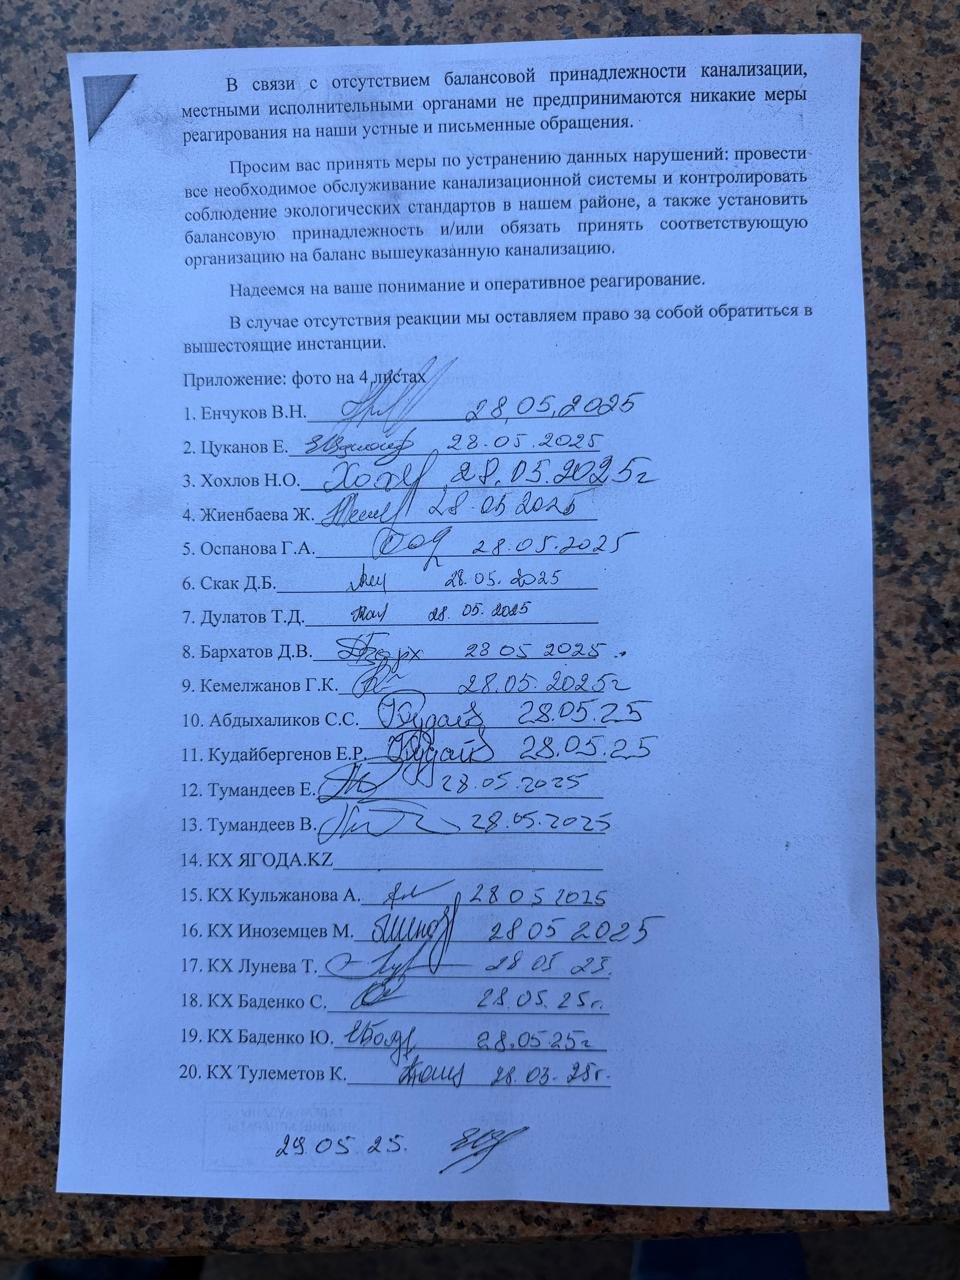 В связи с отсутствием балансовой принадлежности канализации,
местными исполнительными органами не предпринимаются никакие меры
реагирования на наши устные и письменные обращения.
Просим вас принять меры по устранению данных нарушений: провести
все необходимое обслуживание канализационной системы и контролировать
соблюдение экологических стандартов в нашем районе, а также установить
балансовую принадлежность и/или обязать принять соответствующую
организацию на баланс вышеуказанную канализацию.
Надеемся на ваше понимание и оперативное реагирование.
В случае отсутствия реакции мы оставляем право за собой обратиться в
вышестоящие инстанции.
Приложение: фото на 4 листах
1. Енчуков В.Н. 28.05.2025
2. Цуканов Е. 28.05.2025
3. Хохлов Н.О. 28.05.2025г
4. Жиенбаева Ж. 28.05 2025
5. Оспанова Г.А. 28.05.2025
6. Скак Д.Б. 28.05. 2025
7. Дулатов Т.Д. 28. 05. 2025
8. Бархатов Д.В. 28 05 2025
9. Кемелжанов Г.К. 28.05.2025г
10. Абдыхаликов С.С. 28.05.25
11. Кудайбергенов Е.Р. 28.05.25
12. Тумандеев Е. 28.05.2025
13. Тумандеев В. 28.05.2025
14. КХ ЯГОДА.KZ
15. КХ Кульжанова А. 28 05 2025
16. КХ Иноземцев М. 28 05 2025
17. КХ Лунева Т. 28 05
18. КХ Баденко С. 28.05.25г.
19. КХ Баденко Ю. 28.05.25г
20. КХ Тулеметов К. 28.05.25г.
29.05.25.